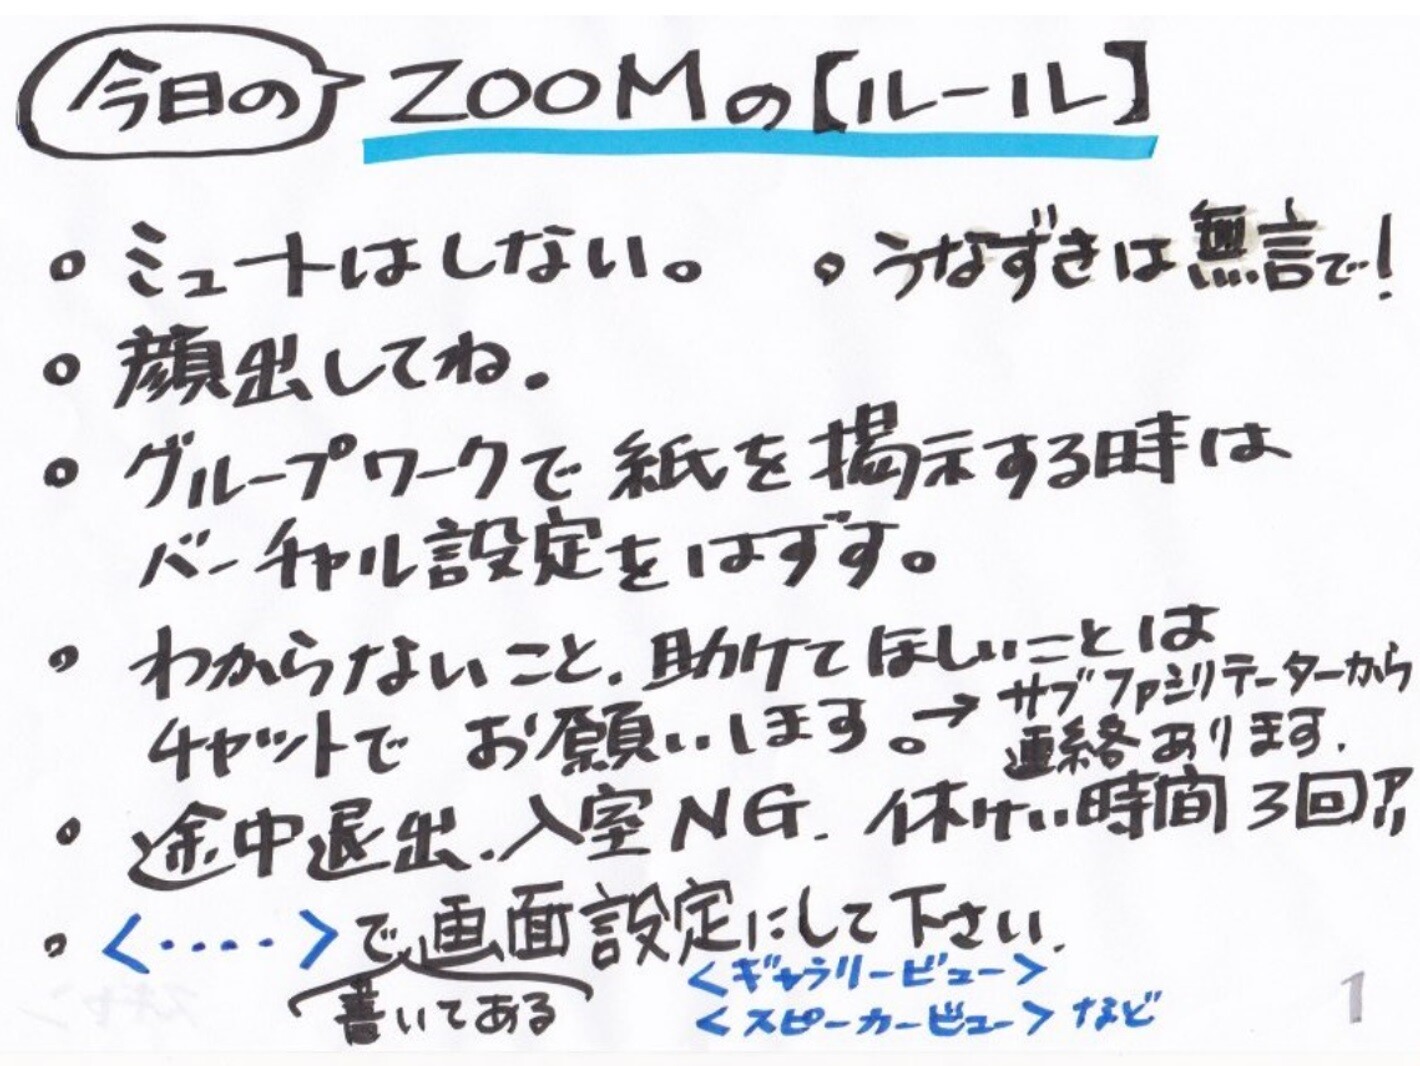 今日の ZOOMの【ルール】
。ミュートはしない。 。うなずきは無言で!
。顔出してね.
。グループワークで紙を掲示する時は
バーチャル設定をはずす。
。わからないこと、助けてほしいことは
チャットでお願いします。→ サブファシリテーターから
連絡あります.
。途中退出、入室NG. 休けい時間3回アリ
。<‥‥>で画面設定にして下さい.
書いてある
<ギャラリービュー>
<スピーカービュー>など
1
スギヤン